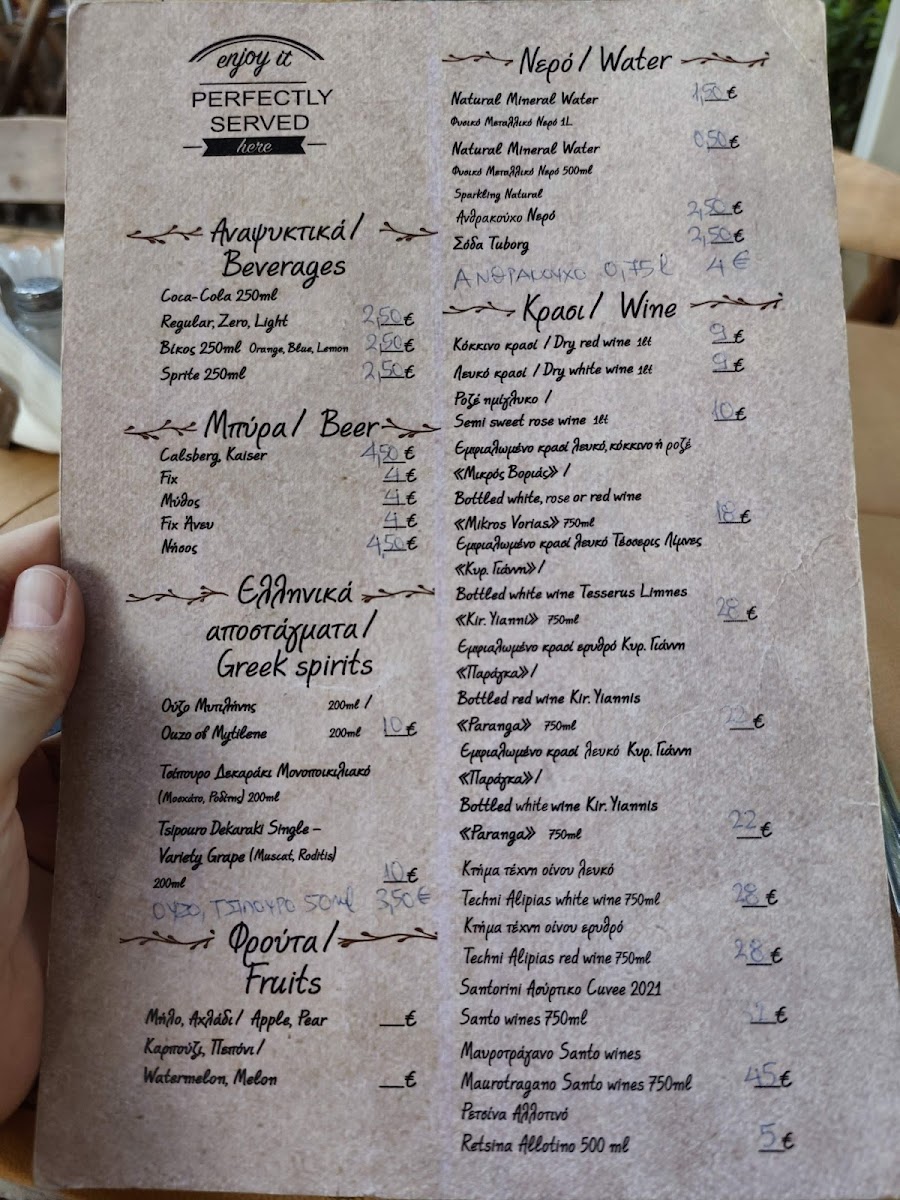 enjoy it
PERFECTLY
SERVED
here
Αναψυκτικά /
Beverages
Coca-Cola 250ml
Regular, Zero, Light 2,50 €
Βίκος 250ml Orange, Blue, Lemon 2,50 €
Sprite 250ml 2,50 €
Μπύρα / Beer
Calsberg, Kaiser 4,50 €
Fix 4 €
Μύθος 4 €
Fix Άνευ 4 €
Νήσος 4,50 €
Ελληνικά
αποστάγματα /
Greek spirits
Ούζο Μυτιλήνης 200ml /
Ouzo of Mytilene 200ml 10 €
Τσίπουρο Δεκαράκι Μονοποικιλιακό
(Μοσχάτο, Ροδίτης) 200ml
Tsipouro Dekaraki Single -
Variety Grape (Muscat, Roditis)
200ml 10 €
ΟΥΖΟ, ΤΣΙΠΟΥΡΟ 50ml 3,50 €
Φρούτα /
Fruits
Μήλο, Αχλάδι / Apple, Pear €
Καρπούζι, Πεπόνι /
Watermelon, Melon €
Νερό / Water
Natural Mineral Water 1,50 €
Φυσικό Μεταλλικό Νερό 1L
Natural Mineral Water 0,50 €
Φυσικό Μεταλλικό Νερό 500ml
Sparkling Natural
Ανθρακούχο Νερό 2,50 €
Σόδα Tuborg 2,50 €
ΑΝΘΡΑΚΟΥΧΟ 0,75l 4 €
Κρασί / Wine
Κόκκινο κρασί / Dry red wine 1lt 9 €
Λευκό κρασί / Dry white wine 1lt 9 €
Ροζέ ημίγλυκο /
Semi sweet rose wine 1lt 10 €
Εμφιαλωμένο κρασί λευκό, κόκκινο ή ροζέ
«Μικρός Βοριάς» /
Bottled white, rose or red wine
«Mikros Vorias» 750ml 18 €
Εμφιαλωμένο κρασί λευκό Τέσσερις Λίμνες
«Κυρ. Γιάννη» /
Bottled white wine Tesserus Limnes
«Kir. Yianni» 750ml 28 €
Εμφιαλωμένο κρασί ερυθρό Κυρ. Γιάννη
«Παράγκα» /
Bottled red wine Kir. Yiannis
«Paranga» 750ml 22 €
Εμφιαλωμένο κρασί λευκό Κυρ. Γιάννη
«Παράγκα» /
Bottled white wine Kir. Yiannis
«Paranga» 750ml 22 €
Κτήμα τέχνη οίνου λευκό
Techni Alipias white wine 750ml 28 €
Κτήμα τέχνη οίνου ερυθρό
Techni Alipias red wine 750ml 28 €
Santorini Ασύρτικο Cuvee 2021
Santo wines 750ml €
Μαυροτράγανο Santo wines
Maurotragano Santo wines 750ml 45 €
Ρετσίνα Αλλοτινό
Retsina Allotino 500 ml 5 €